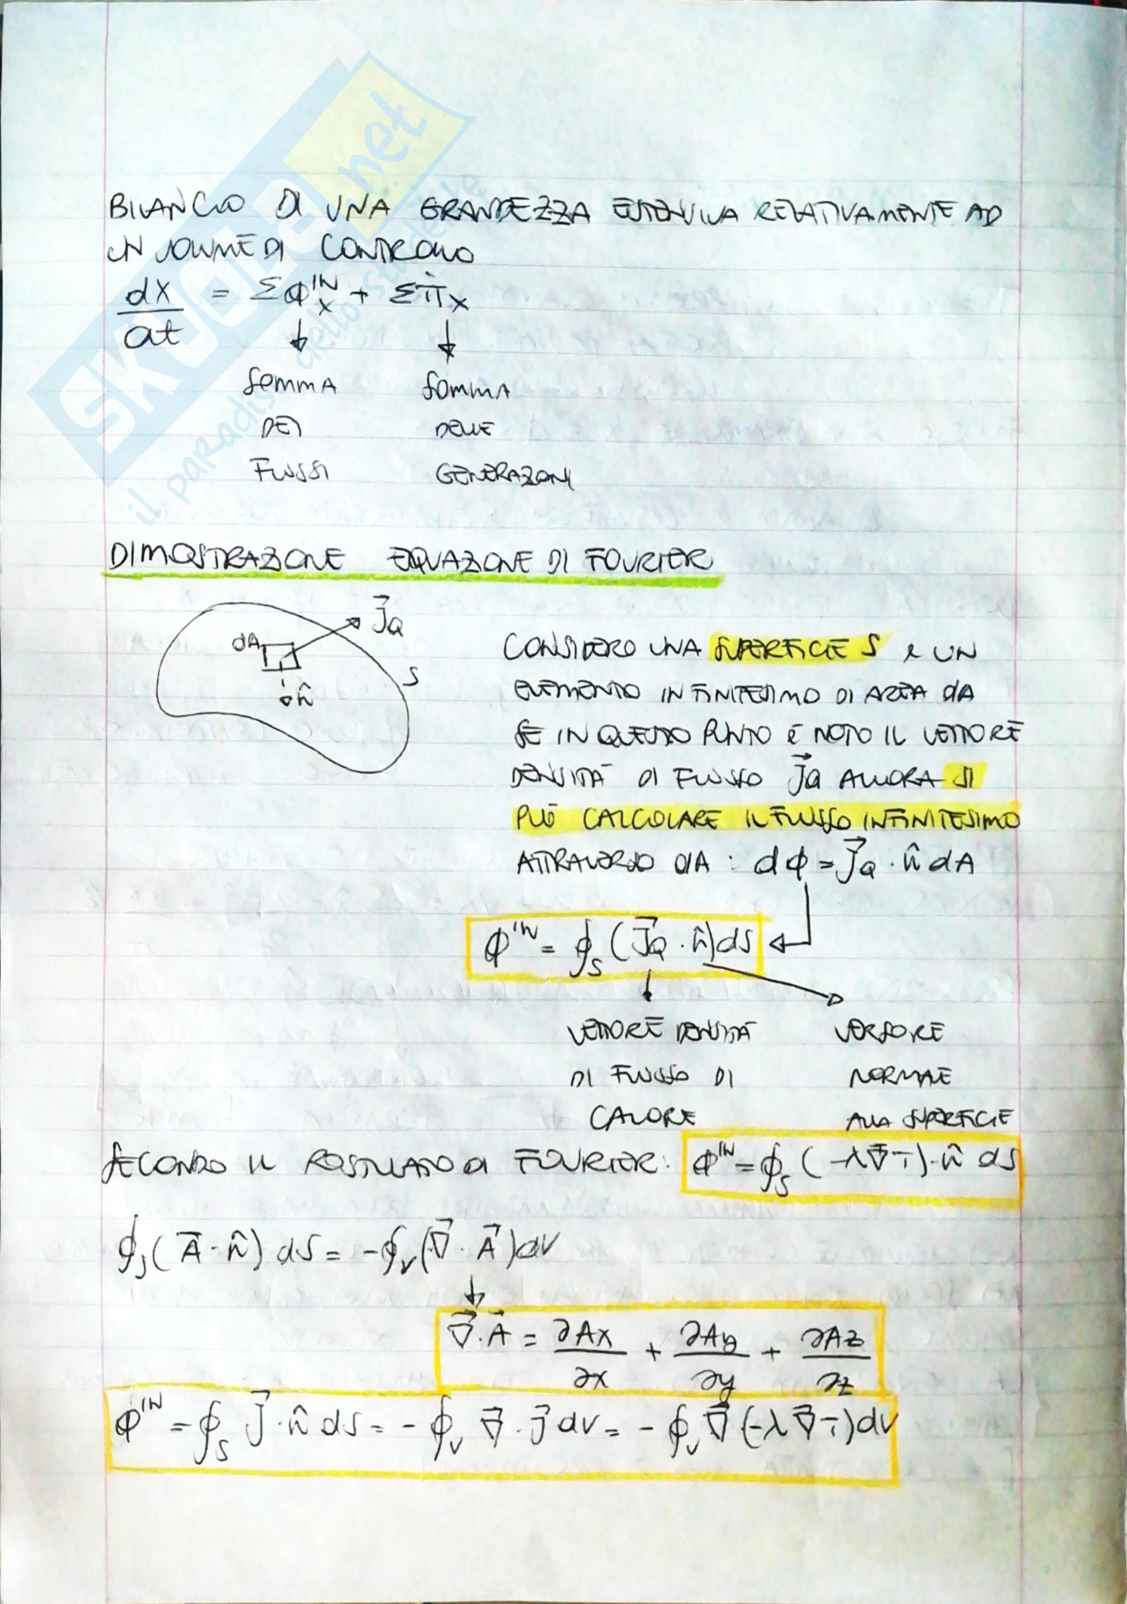 SKUOLA.net
il paradiso dello studente
BILANCIO DI UNA GRANDEZZA ESTENSIVA RELATIVAMENTE AD
UN VOLUME DI CONTROLLO
dX/dt = ΣΦ_X^IN + Σπ̇_X
SOMMA SOMMA
DEI DELLE
FLUSSI GENERAZIONI
DIMOSTRAZIONE EQUAZIONE DI FOURIER
dA J⃗Q S n̂
CONSIDERO UNA SUPERFICIE S E UN
ELEMENTO INFINITESIMO DI AREA dA
SE IN QUESTO PUNTO È NOTO IL VETTORE
DENSITÀ DI FLUSSO J⃗Q ALLORA SI
PUÒ CALCOLARE IL FLUSSO INFINITESIMO
ATTRAVERSO dA : dϕ = J⃗Q · n̂ dA
Φ^IN = ∮_S (J⃗Q · n̂) dS
VETTORE DENSITÀ VERSORE
DI FLUSSO DI NORMALE
CALORE ALLA SUPERFICIE
SECONDO IL POSTULATO DI FOURIER: Φ^IN = ∮_S (-λ∇⃗T) · n̂ dS
∮_S (A⃗ · n̂) dS = -∮_V (∇⃗ · A⃗) dV
∇⃗ · A⃗ = ∂Ax/∂x + ∂Ay/∂y + ∂Az/∂z
Φ^IN = ∮_S J⃗ · n̂ dS = - ∮_V ∇⃗ · J⃗ dV = - ∮_V ∇⃗ (-λ∇⃗T) dV